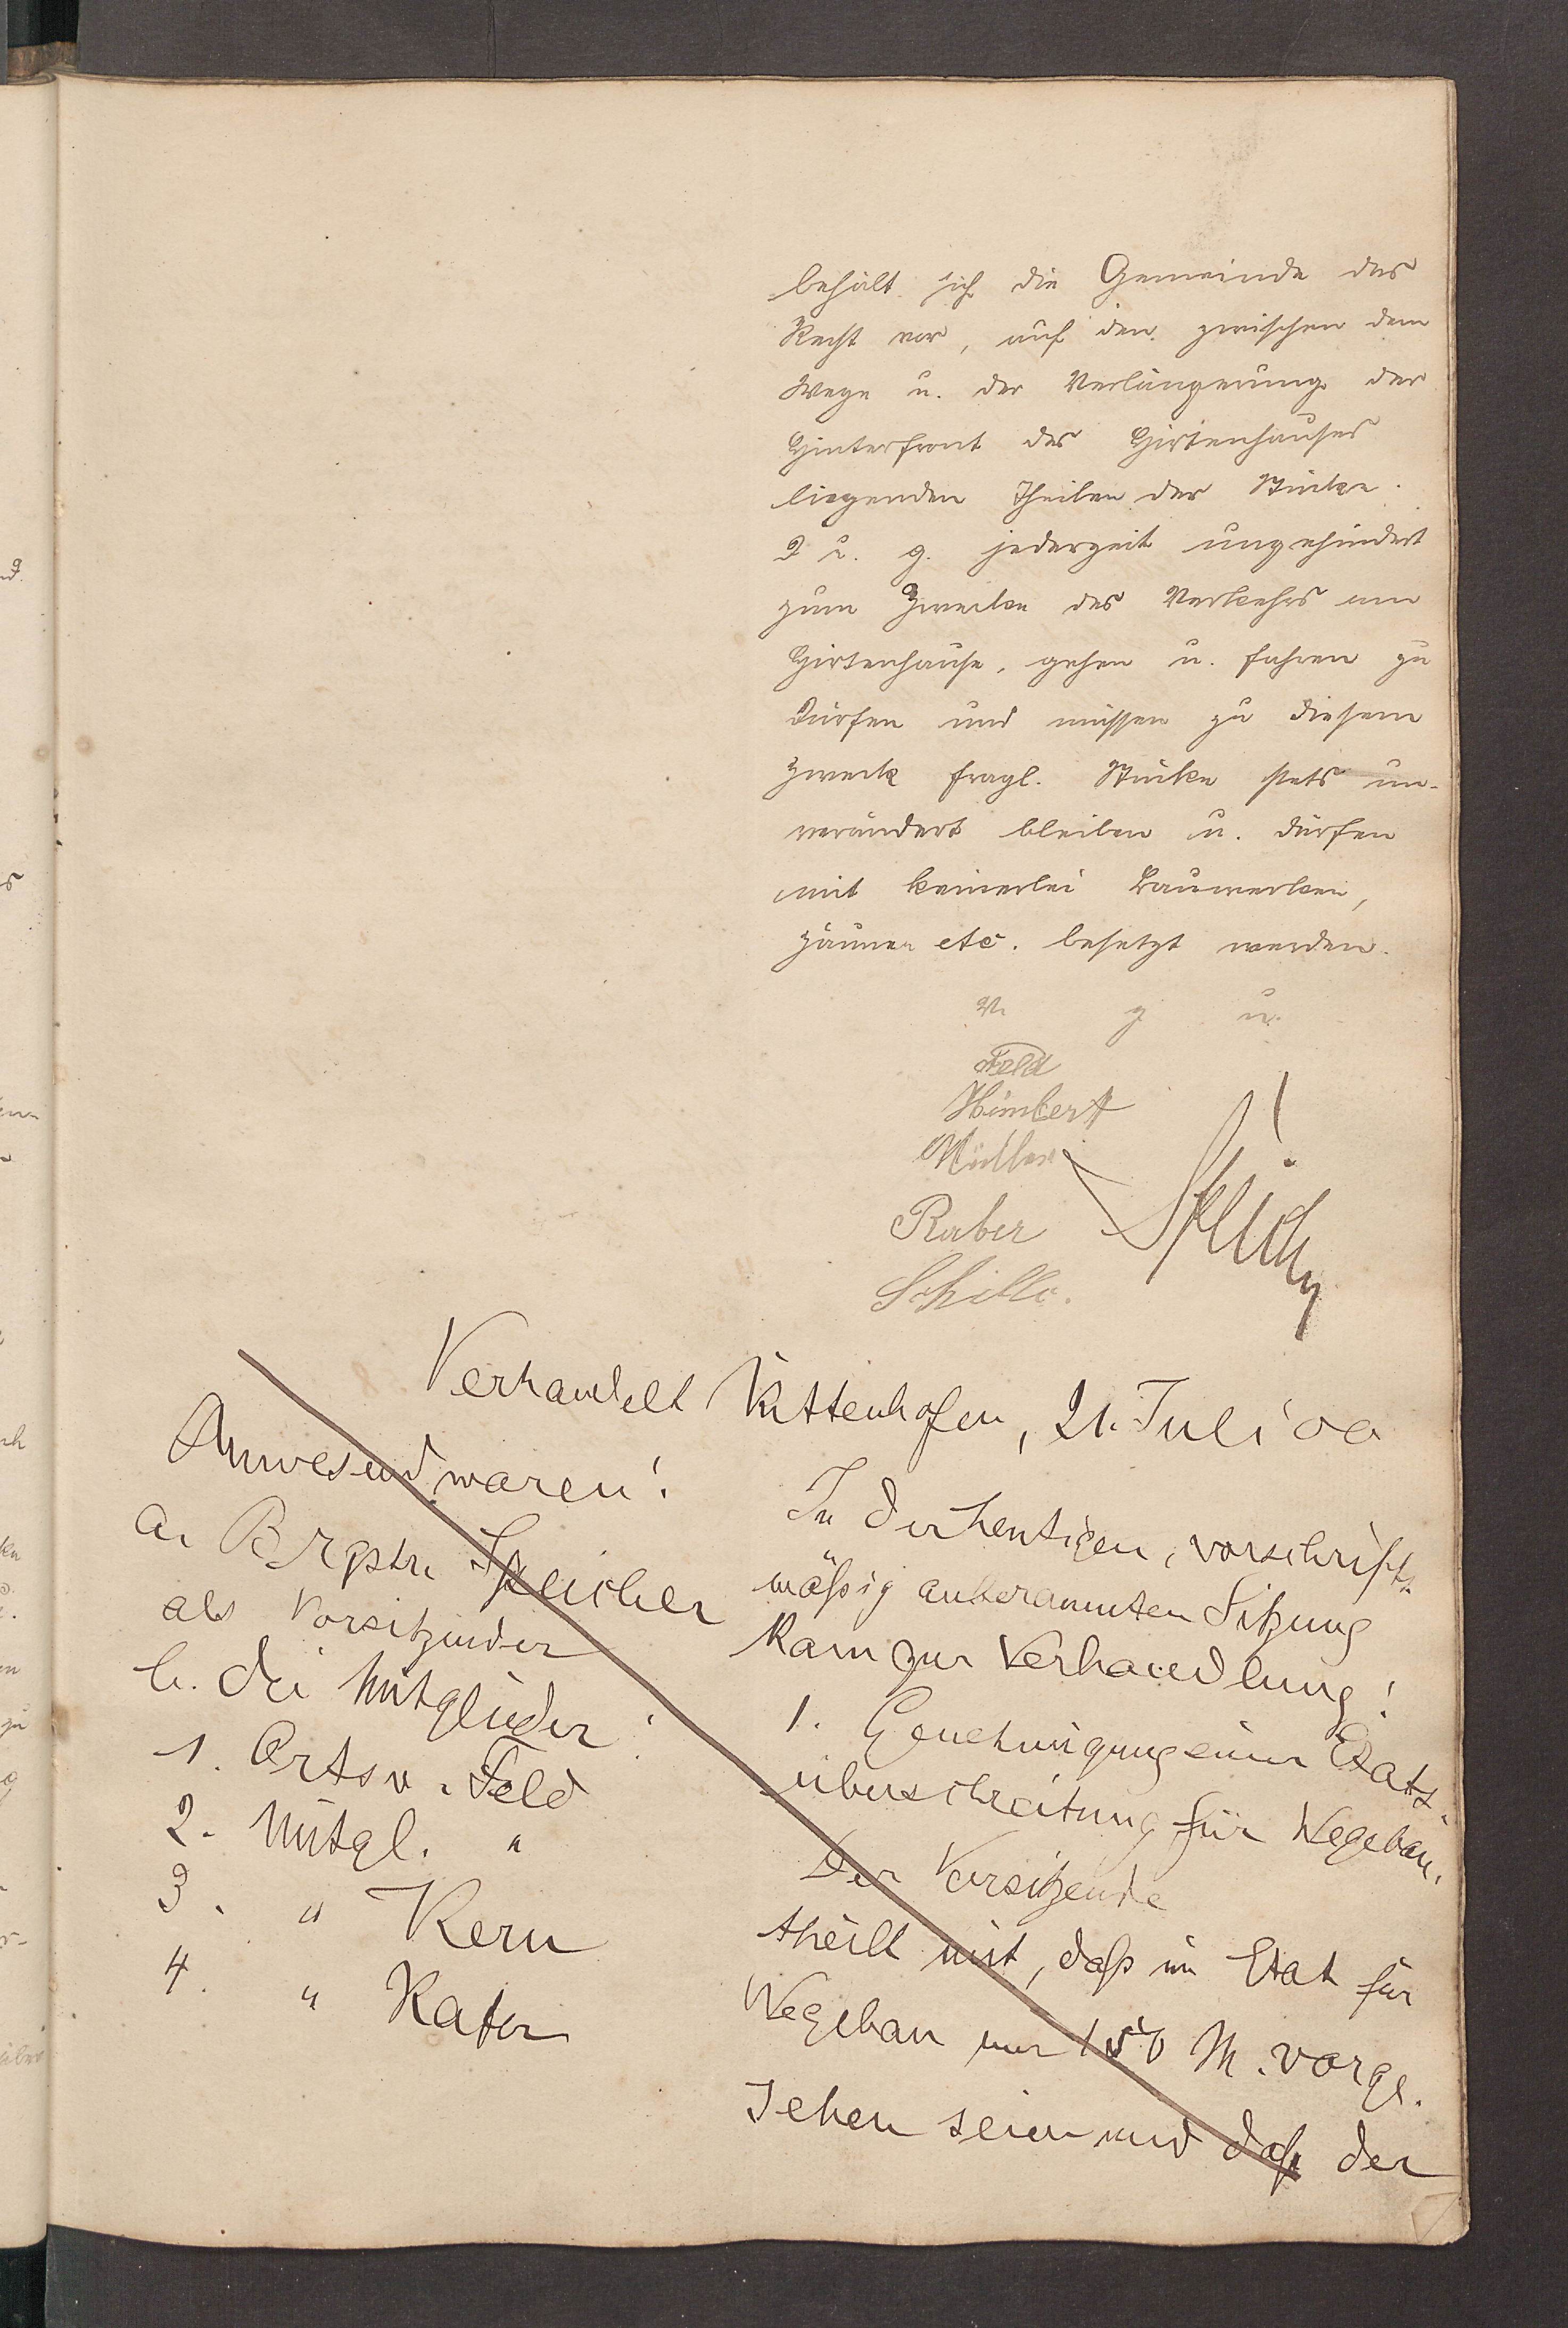 behält sich die Gemeinde das
Recht vor, auf den zwischen dem
Wege u. der Verlängerung der
Hinterfront des Hirtenhauses
liegenden Theilen der Stücke
u. g. jederzeit ungehindert
zum Zwecke des Verkehrs am
Hirtenhause, gehen u. fahren zu
dürfen und müssen zu diesem
Zweck fragl. Stücke stets un-
verändert bleiben u. dürfen
mit keinerlei Bauwerken,
Zäunen etc. besetzt werden.
V. g. u.
Feld
Himbert
Müller
Raber
Schillo.
Verhandelt Kittenhofen, 21. Juli 00
Anwesend waren:
a. Brgstr. Speicher
als Vorsitzender
b. die Mitglieder:
1. Ortsv. Feld
2. Mitgl. "
3. " Kern
4. "
In der heutigen, vorschrifts-
mäßig anberaumten Sitzung
kam zur Verhandlung:
1. Genehmigung einer Etats-
überschreitung für Wegebau.
Der Vorsitzende
theilt mit, daß im Etat für
Wegebau nur 150 M. vorge-
sehen seien und daß der